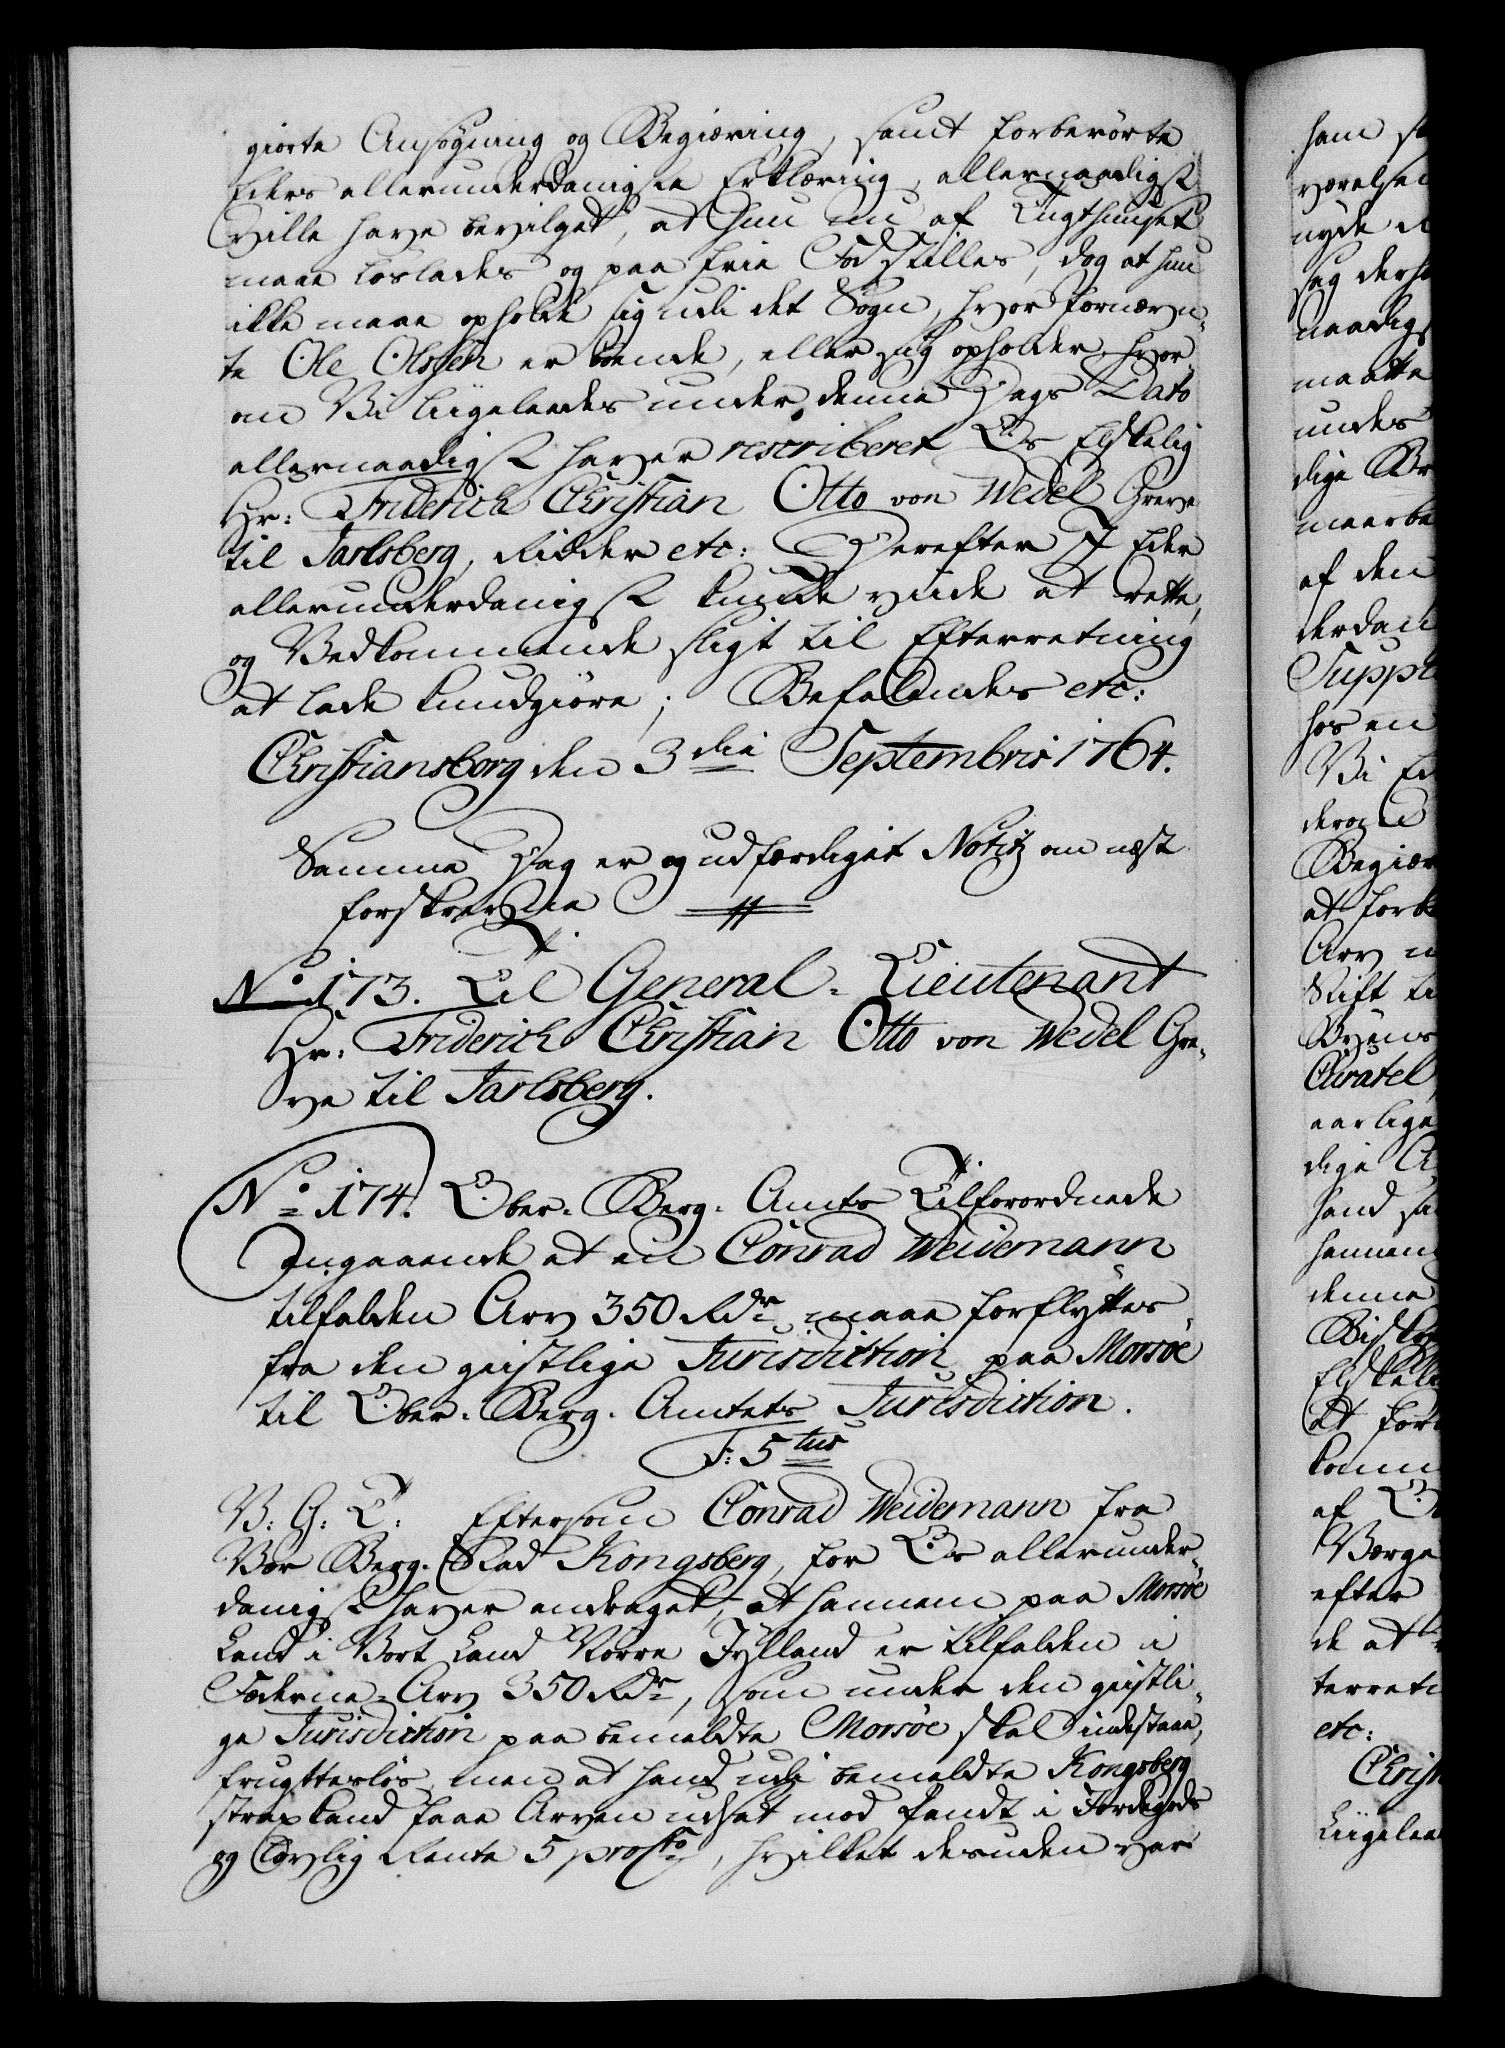 giorte Ansøgning og Begiæring, samt forberørte
Eders allerunderdanigste Erklæring, allernaadigst
ville have bevilget, at hun nu af Tugthuuset
maae løslades og paa frie Fod stilles, dog at hun
ikke maae opholde sig udi det Sogn, hvor fornævn-
te Ole Olssen er boende, eller sig opholder, hvor-
om Vi liigeleedes under denne Dags Dato
allernaadigst haver rescriberet Os Elskelig
Hr: Friderich Christian Otto von Wedel Greve
til Jarlsberg, Ridder etc: Derefter I Eder
allerunderdanigst kunde viide at rette,
og Vedkommende sligt til Efterretning
at lade kundgiøre; Befalendes etc:
Christiansborg den 3die Septembris 1764.
Samme Dag er og udfærdiget Notitz om næst
forskrevne
No 173. Til General-Lieutenant
Hr: Friderich Christian Otto von Wedel Gre-
ve til Jarlsberg.
No 174. Ober-Berg-Amts Tilforordnede
Angaaende at en Conrad Weidemann
tilfalden Arv 350 Rdr maae forflyttes
fra den geistlige Jurisdiction paa Morsøe
til Ober-Berg-Amtets Jurisdiction.
F: 5tus
V: G: T: Eftersom Conrad Weidemann fra
Vor Berg-Stad Kongsberg, for Os allerunder-
danigst haver andraget, at hannem paa Morsøe
Land i Vort Land Nørre Jylland er tilfalden i
Fæderne-Arv 350 Rdr, som under den geistli-
ge Jurisdiction paa bemeldte Morsøe skal indestaae,
frugtesløs, men at hand udi bemeldte Kongsberg
strax kand faae Arven udsat mod Pandt i Jordegods
og lovlig Rente 5 procto, hvilket desuden var